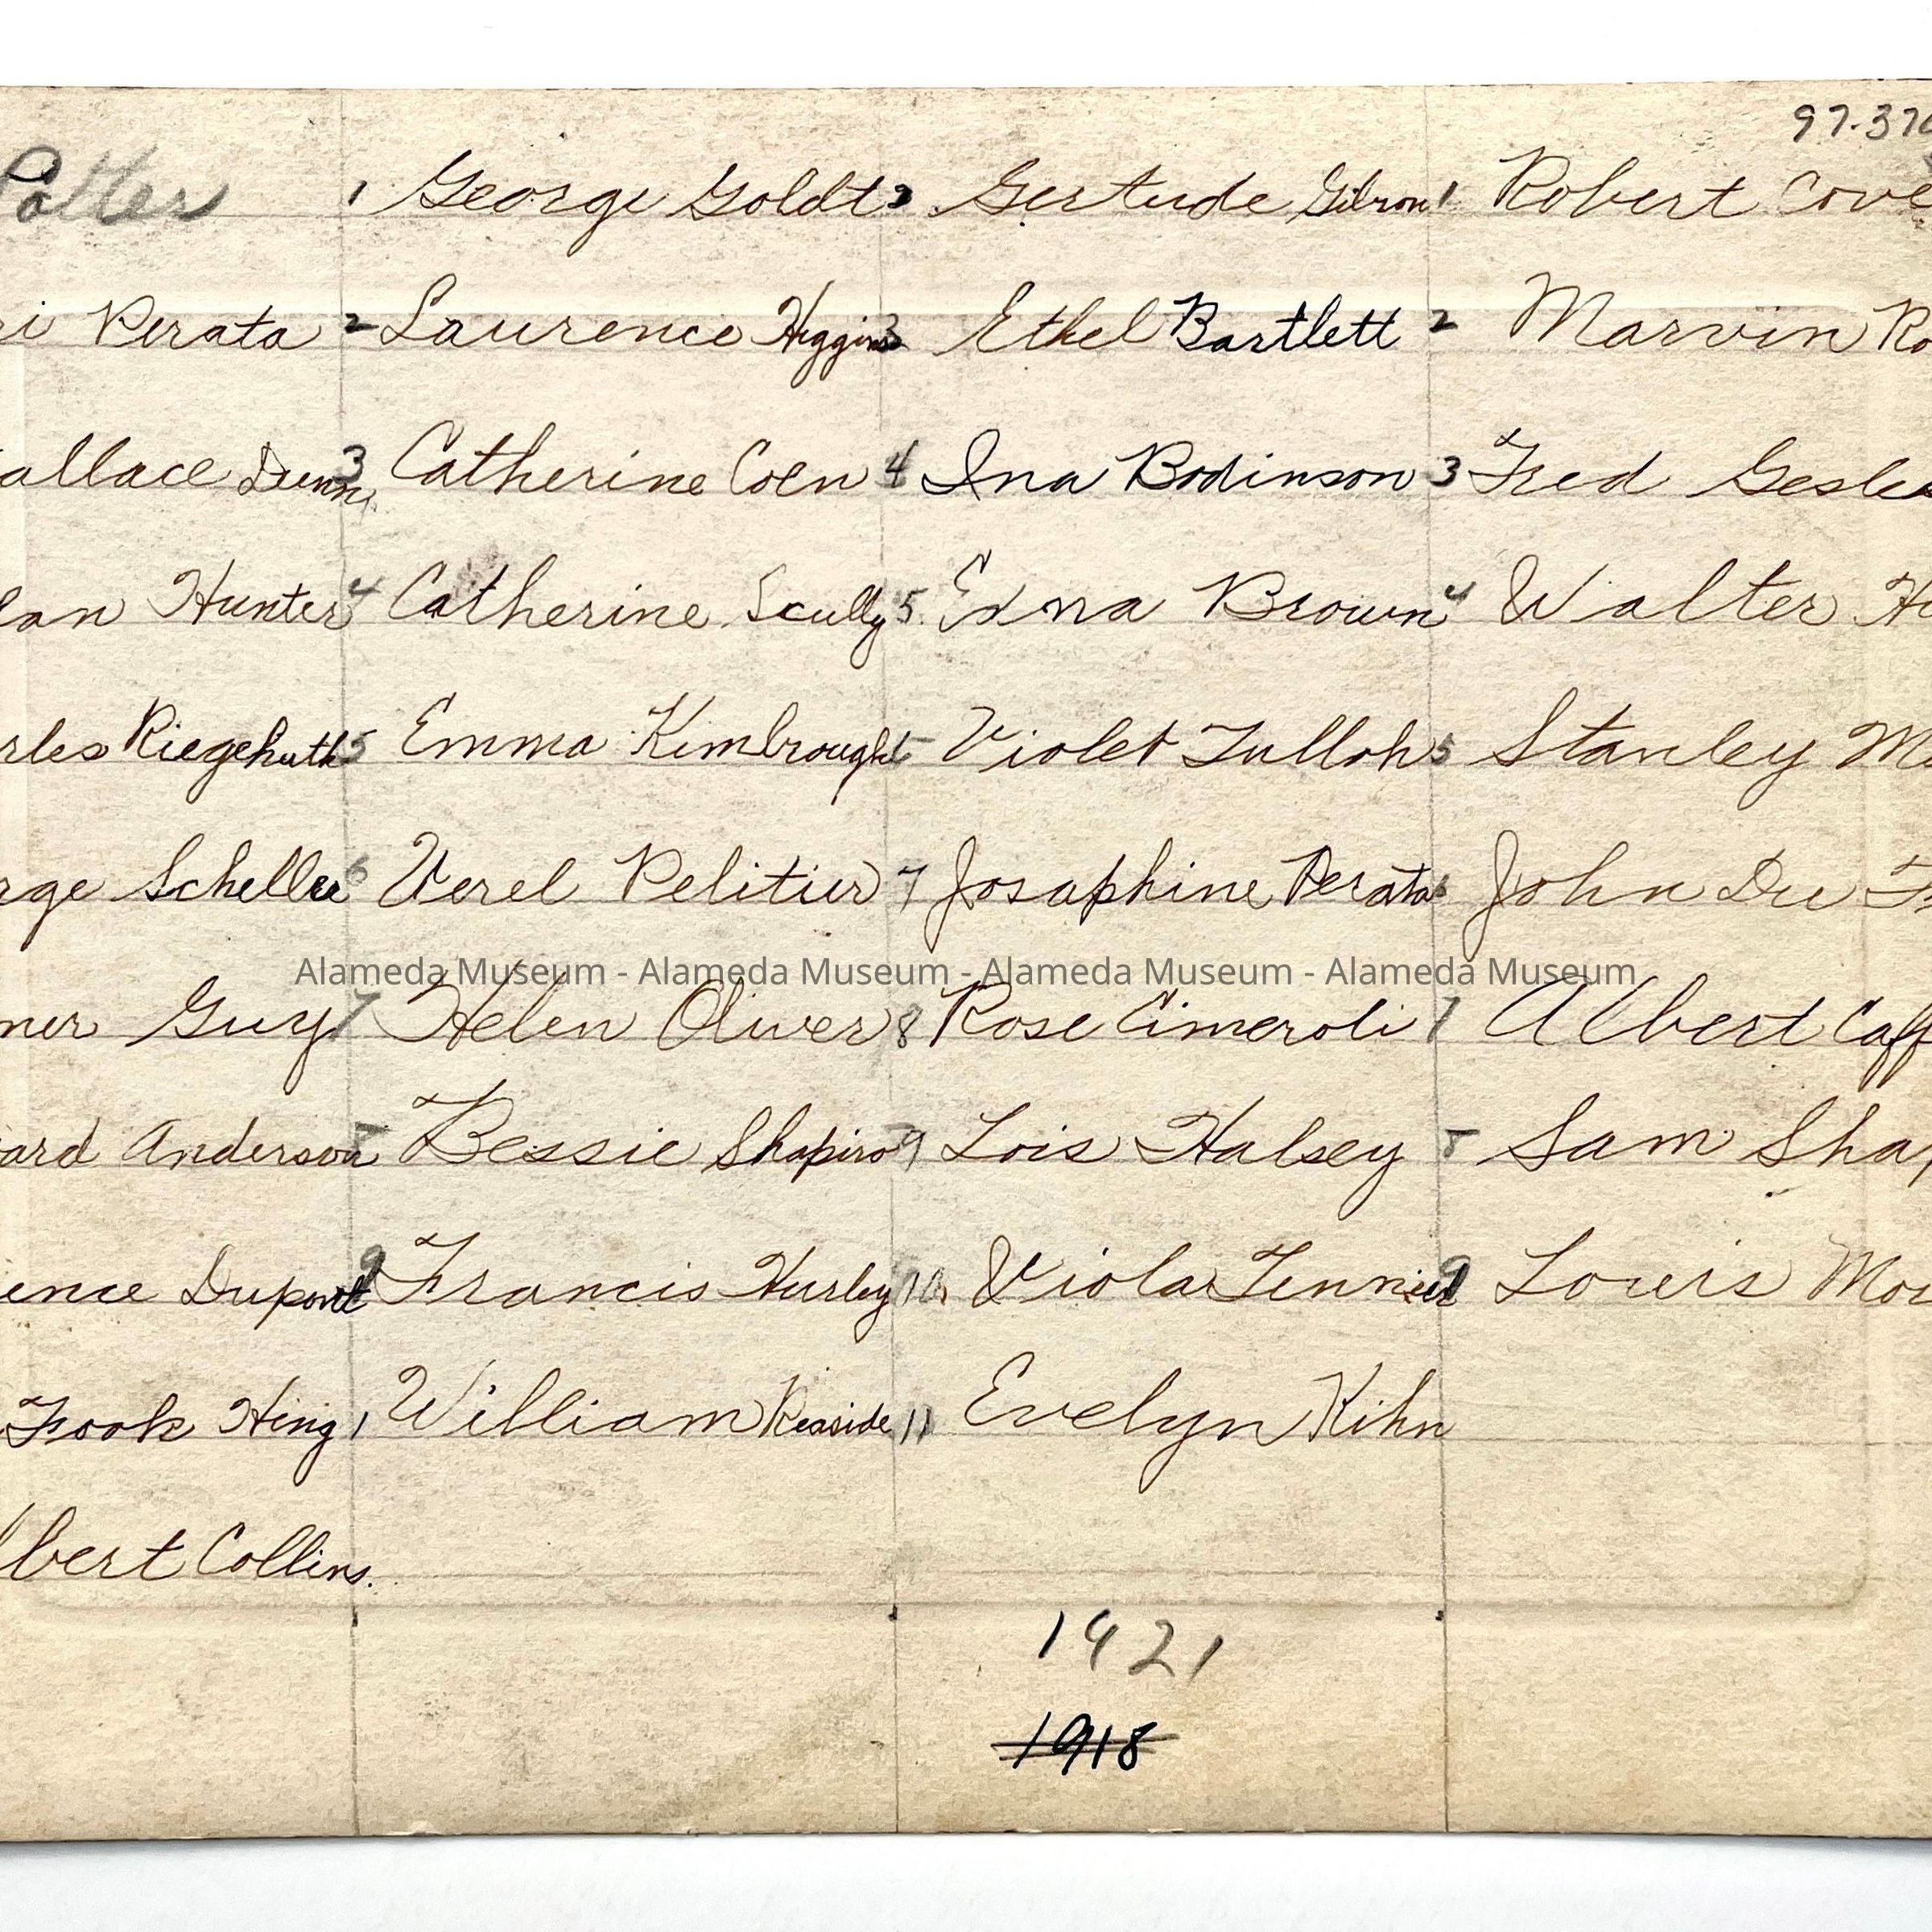 97-376
Potter 1 George Goldt 2 Gertude Gibson 1 Robert Cove
ri Perata 2 Laurence Higgins 3 Ethel Bartlett 2 Marvin Ro
allace Dunn 3 Catherine Coen 4 Ina Bodinson 3 Fred Gesle
lan Hunter 4 Catherine Scully 5. Edna Brown 4 Walter H
rles Riegehuth 5 Emma Kimbrough Violet Tulloh 5 Stanley M
rge Scheller 6 Verel Pelitier 7 Josaphine Perata 6 John Du
Alameda Museum - Alameda Museum - Alameda Museum - Alameda Museum
ner Guy 7 Helen Oliver 8 Rose Cimeroli 7 Albert Caff
ard Anderson 8 Bessie Shapiro 9 Lois Halsey 8 Sam Shap
ence Dupont 9 Francis Hurley 10. Viola 9 Louis Mor
Fook Hing 1 William Reaside 11 Evelyn Kihn
lbert Collins.
1921
1918